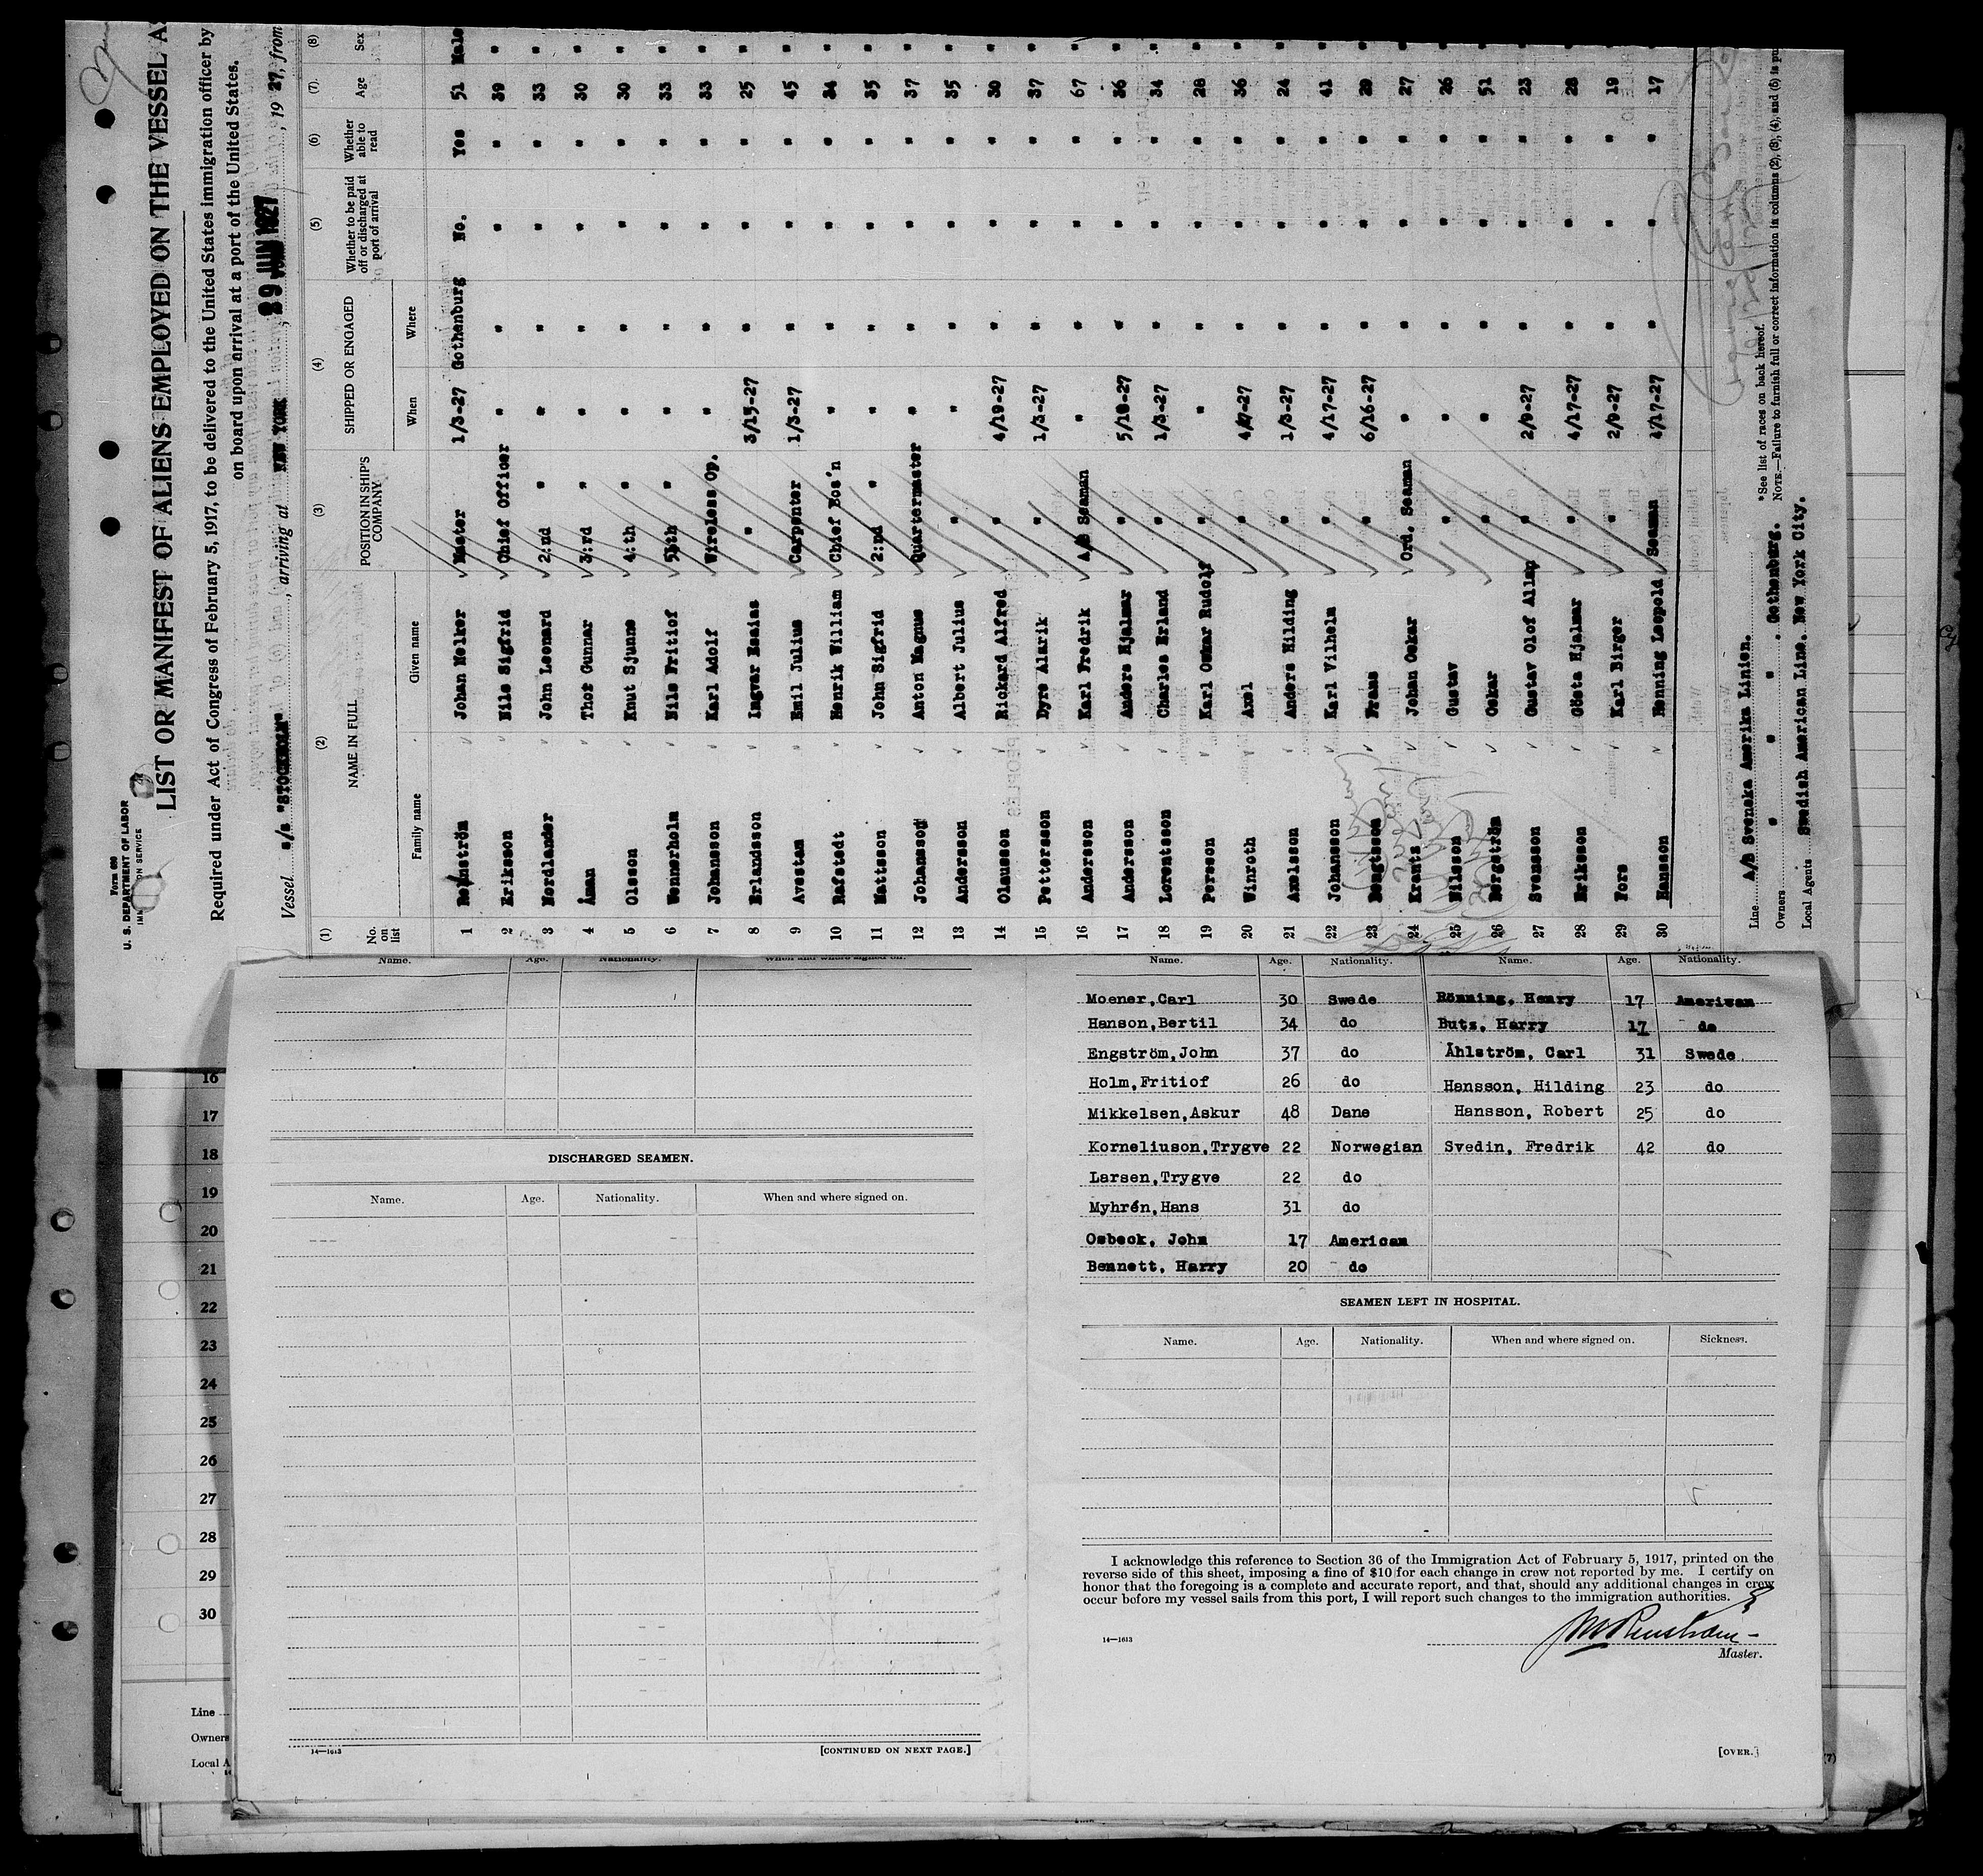 Form 680
U. S. DEPARTMENT OF LABOR
SERVICE
LIST OR MANIFEST OF ALIENS EMPLOYED ON THE VESSEL
Required under Act of Congress of February 5, 1917, to be delivered to the United States immigration officer by
on board upon arrival at a port of the United States.
Vessel s/s "STOCKHOLM", arriving at NEW YORK, 29 JUN 1927, 1927, from
(1) (2) (3) (4) (5) (6) (7) (8)
No. on list NAME IN FULL POSITION IN SHIP'S COMPANY SHIPPED OR ENGAGED Whether to be paid off or discharged at port of arrival Whether able to read Age Sex
Family name Given name When Where
1 Johan Melker Master 1/3-27 Gothenburg No. Yes 51 Male
2 Eriksson Nils Sigfrid Chief Officer " " " " 39 "
3 Nordlander John Leonard 2:nd " " " " " 33 "
4 Åman Thor Gunnar 3:rd " " " " " 30 "
5 Olsson Knut Sjunne 4:th " " " " " 30 "
6 Wennerholm Nils Fritiof 5th " " " " " 33 "
7 Johansson Karl Adolf Wireless Op. " " " " 33 "
8 Erlandsson Ingvar Esaias " 3/15-27 " " " 25 "
9 Avestam Emil Julius Carpenter 1/3-27 " " " 45 "
10 Rafstedt Henrik William Chief Bos'n " " " " 34 "
11 Mattsson John Sigfrid 2:nd " " " " " 35 "
12 Johansson Anton Magnus Quartermaster " " " " 37 "
13 Andersson Albert Julius " " " " " 35 "
14 Olausson Rickard Alfred " 4/19-27 " " " 30 "
15 Pettersson Dyre Alarik " 1/3-27 " " " 37 "
16 Andersson Karl Fredrik A/B Seaman " " " " 67 "
17 Andersson Anders Hjalmar " 5/18-27 " " " 36 "
18 Lorentsson Charles Erland " 1/3-27 " " " 34 "
19 Person Karl Oskar Rudolf " " " " " 28 "
20 Winroth Axel " " " " 36 "
21 Axelsson Anders Hilding " 1/3-27 " " " 24 "
22 Johansson Karl Vilhelm " 4/17-27 " " " 41 "
23 Bengtsson Frans " 6/16-27 " " " 29 "
24 Krantz Johan Oskar Ord. Seaman " " " " 27 "
25 Nilsson Gustav " " " " " 26 "
26 Bergström Oskar " " " " " 51 "
27 Svensson Gustav Olof Allan " 2/9-27 " " " 23 "
28 Eriksson Gösta Hjalmar " 4/17-27 " " " 28 "
29 Fors Karl Birger " 2/9-27 " " " 19 "
30 Hansson Henning Leopold Seaman " " " 17 "
Line A/B Svenska Amerika Linien.
*See list of races on back hereof.
Owners " " " . Gothenburg.
NOTE.—Failure to furnish full or correct information in columns (2), (3), (4), and (5) is
Local Agents Swedish American Line. New York City.
Name. Age. Nationality. When and where signed on.
DISCHARGED SEAMEN.
Name. Age. Nationality. When and where signed on.
14—1613
[CONTINUED ON NEXT PAGE.]
Name. Age. Nationality. Name. Age. Nationality.
Moener, Carl 30 Swede Rönning, Henry 17 American
Hanson, Bertil 34 do Butz, Harry 17 do
Engström, John 37 do Åhlström, Carl 31 Swede
Holm, Fritiof 26 do Hansson, Hilding 23 do
Mikkelsen, Askur 48 Dane Hansson, Robert 25 do
Korneliuson, Trygve 22 Norwegian Svedin, Fredrik 42 do
Larsen, Trygve 22 do
Myhrén, Hans 31 do
Osbeck, John 17 American
Bennett, Harry 20 do
SEAMEN LEFT IN HOSPITAL.
Name. Age. Nationality. When and where signed on. Sickness.
I acknowledge this reference to Section 36 of the Immigration Act of February 5, 1917, printed on the
reverse side of this sheet, imposing a fine of $10 for each change in crew not reported by me. I certify on
honor that the foregoing is a complete and accurate report, and that, should any additional changes in crew
occur before my vessel sails from this port, I will report such changes to the immigration authorities.
14—1613
Master.
[OVER.]
16
17
18
19
20
21
22
23
24
25
26
27
28
29
30
Line
Owners
Local A
(7)